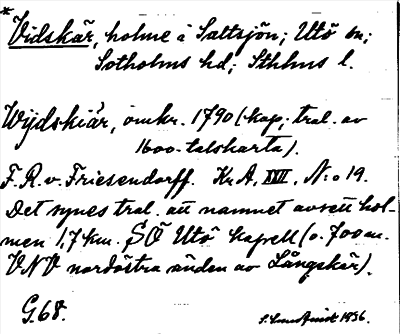 * Vidskär, holme i Saltsjön; Utö sn;
Sotholms hd; Sthlms l.
Wijdskiär, omkr. 1790 (kop; tral. av
1600-talskarta).
F. R. v. Friesendorff. Kr. A, XVII, N:o 19.
Det synes tral. att namnet avsett hol-
men 1,7 km. SÖ Utö kapell (o. 700 m.
VNV nordöstra änden av Långskär).
G. 68.
1936.